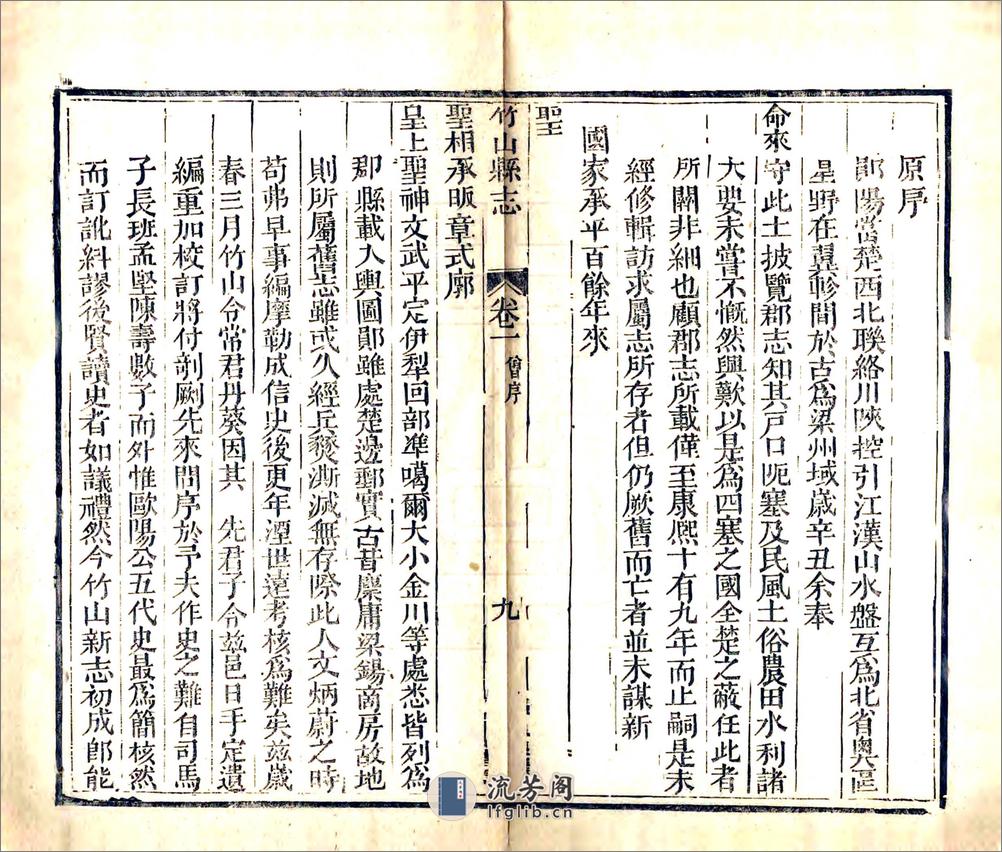 原序
鄖陽當楚西北聯絡川陝控引江漢山水盤互爲北省奧區
星野在翼軫間於古爲梁州域歲辛丑余奉
命來守此土披覽郡志知其戸口阨塞及民風土俗農田水利諸
大要未嘗不慨然興歎以是爲四塞之國全楚之蔽任此者
所關非細也顧郡志所載僅至康熙十有九年而止嗣是未
經修輯訪求屬志所存者但仍厥舊而亡者並未謀新
國家承平百餘年來
聖
竹山縣志 卷一 曾序 九
聖相承昄章式廓
皇上聖神文武平定伊犁回部準噶爾大小金川等處悉皆列爲
郡縣載入輿圖鄖雖處楚邊郵實古昔麇庸梁鍚商房故地
則所屬舊志雖或久經兵燹澌滅無存際此人文炳蔚之時
苟弗早事編摩勒成信史後更年湮世遠考核爲難矣兹歲
春三月竹山令常君丹葵因其 先君子令兹邑日手定遺
編重加校訂將付剞劂先來問序於予夫作史之難自司馬
子長班孟堅陳壽數子而外惟歐陽公五代史最爲簡核然
而訂訛糾謬後賢讀史者如議禮然今竹山新志初成郎能
流芳阁
lfglib.cn